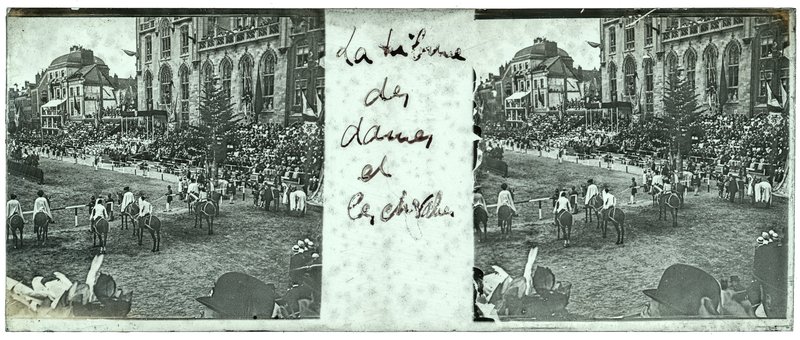 La tribune
des
dames
et
les chevaliers